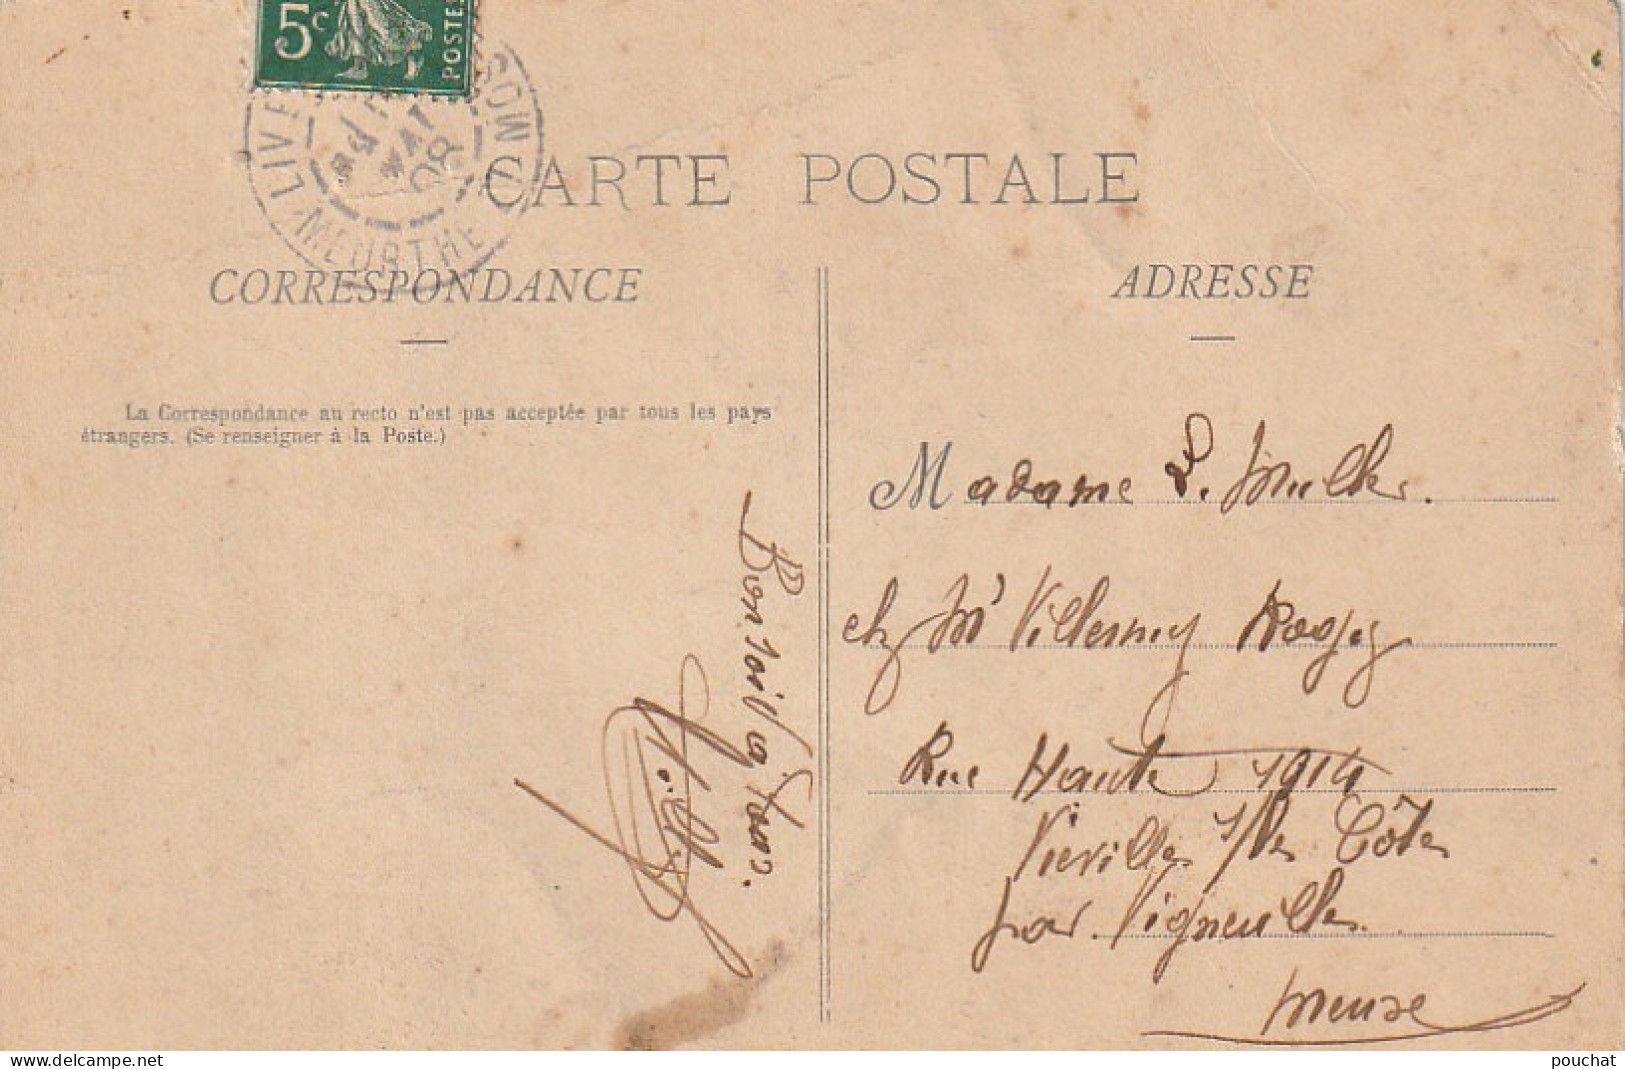 5c
POSTES
LIV SON
MAI
08
MEURTHE M
CARTE POSTALE
CORRESPONDANCE
ADRESSE
La Correspondance au recto n'est pas acceptée par tous les pays
étrangers. (Se renseigner à la Poste.)
Bonsoir à tous.
Madame L. Muller.
chez Mr Villermy
Rue Haute 1914
Viéville s/les Côtes
par Vigneulles
Meuse
pouchat